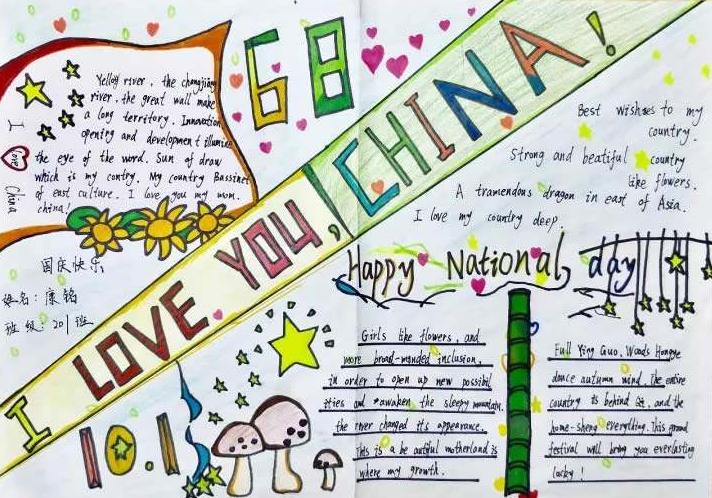 68
I LOVE YOU, CHINA!
Yellow river, the changjiang
river, the great wall make
a long territory. Innovation
opening and development illumine
the eye of the word. Sun of draw
which is my contry. My country Bassinet
of east culture. I love you my mom.
china!
I love China
国庆快乐
姓名：康铭
班级：201班
10.1
Best wishes to my
country.
Strong and beatiful country
like flowers.
A tramendous dragon in east of Asia.
I love my country deep.
Happy National day
Girls like flowers, and
more broad-minded inclusion,
in order to open up new possibil
ities and awaken the sleepy mountain.
the river changed its appearance.
This is a be autiful motherland is
where my growth.
Full Ying Guo, Woods Hongye
dance autumn wind. The entire
country is behind and the
home-sheng everything. this grand
festival will bring you everlasting
lucky!